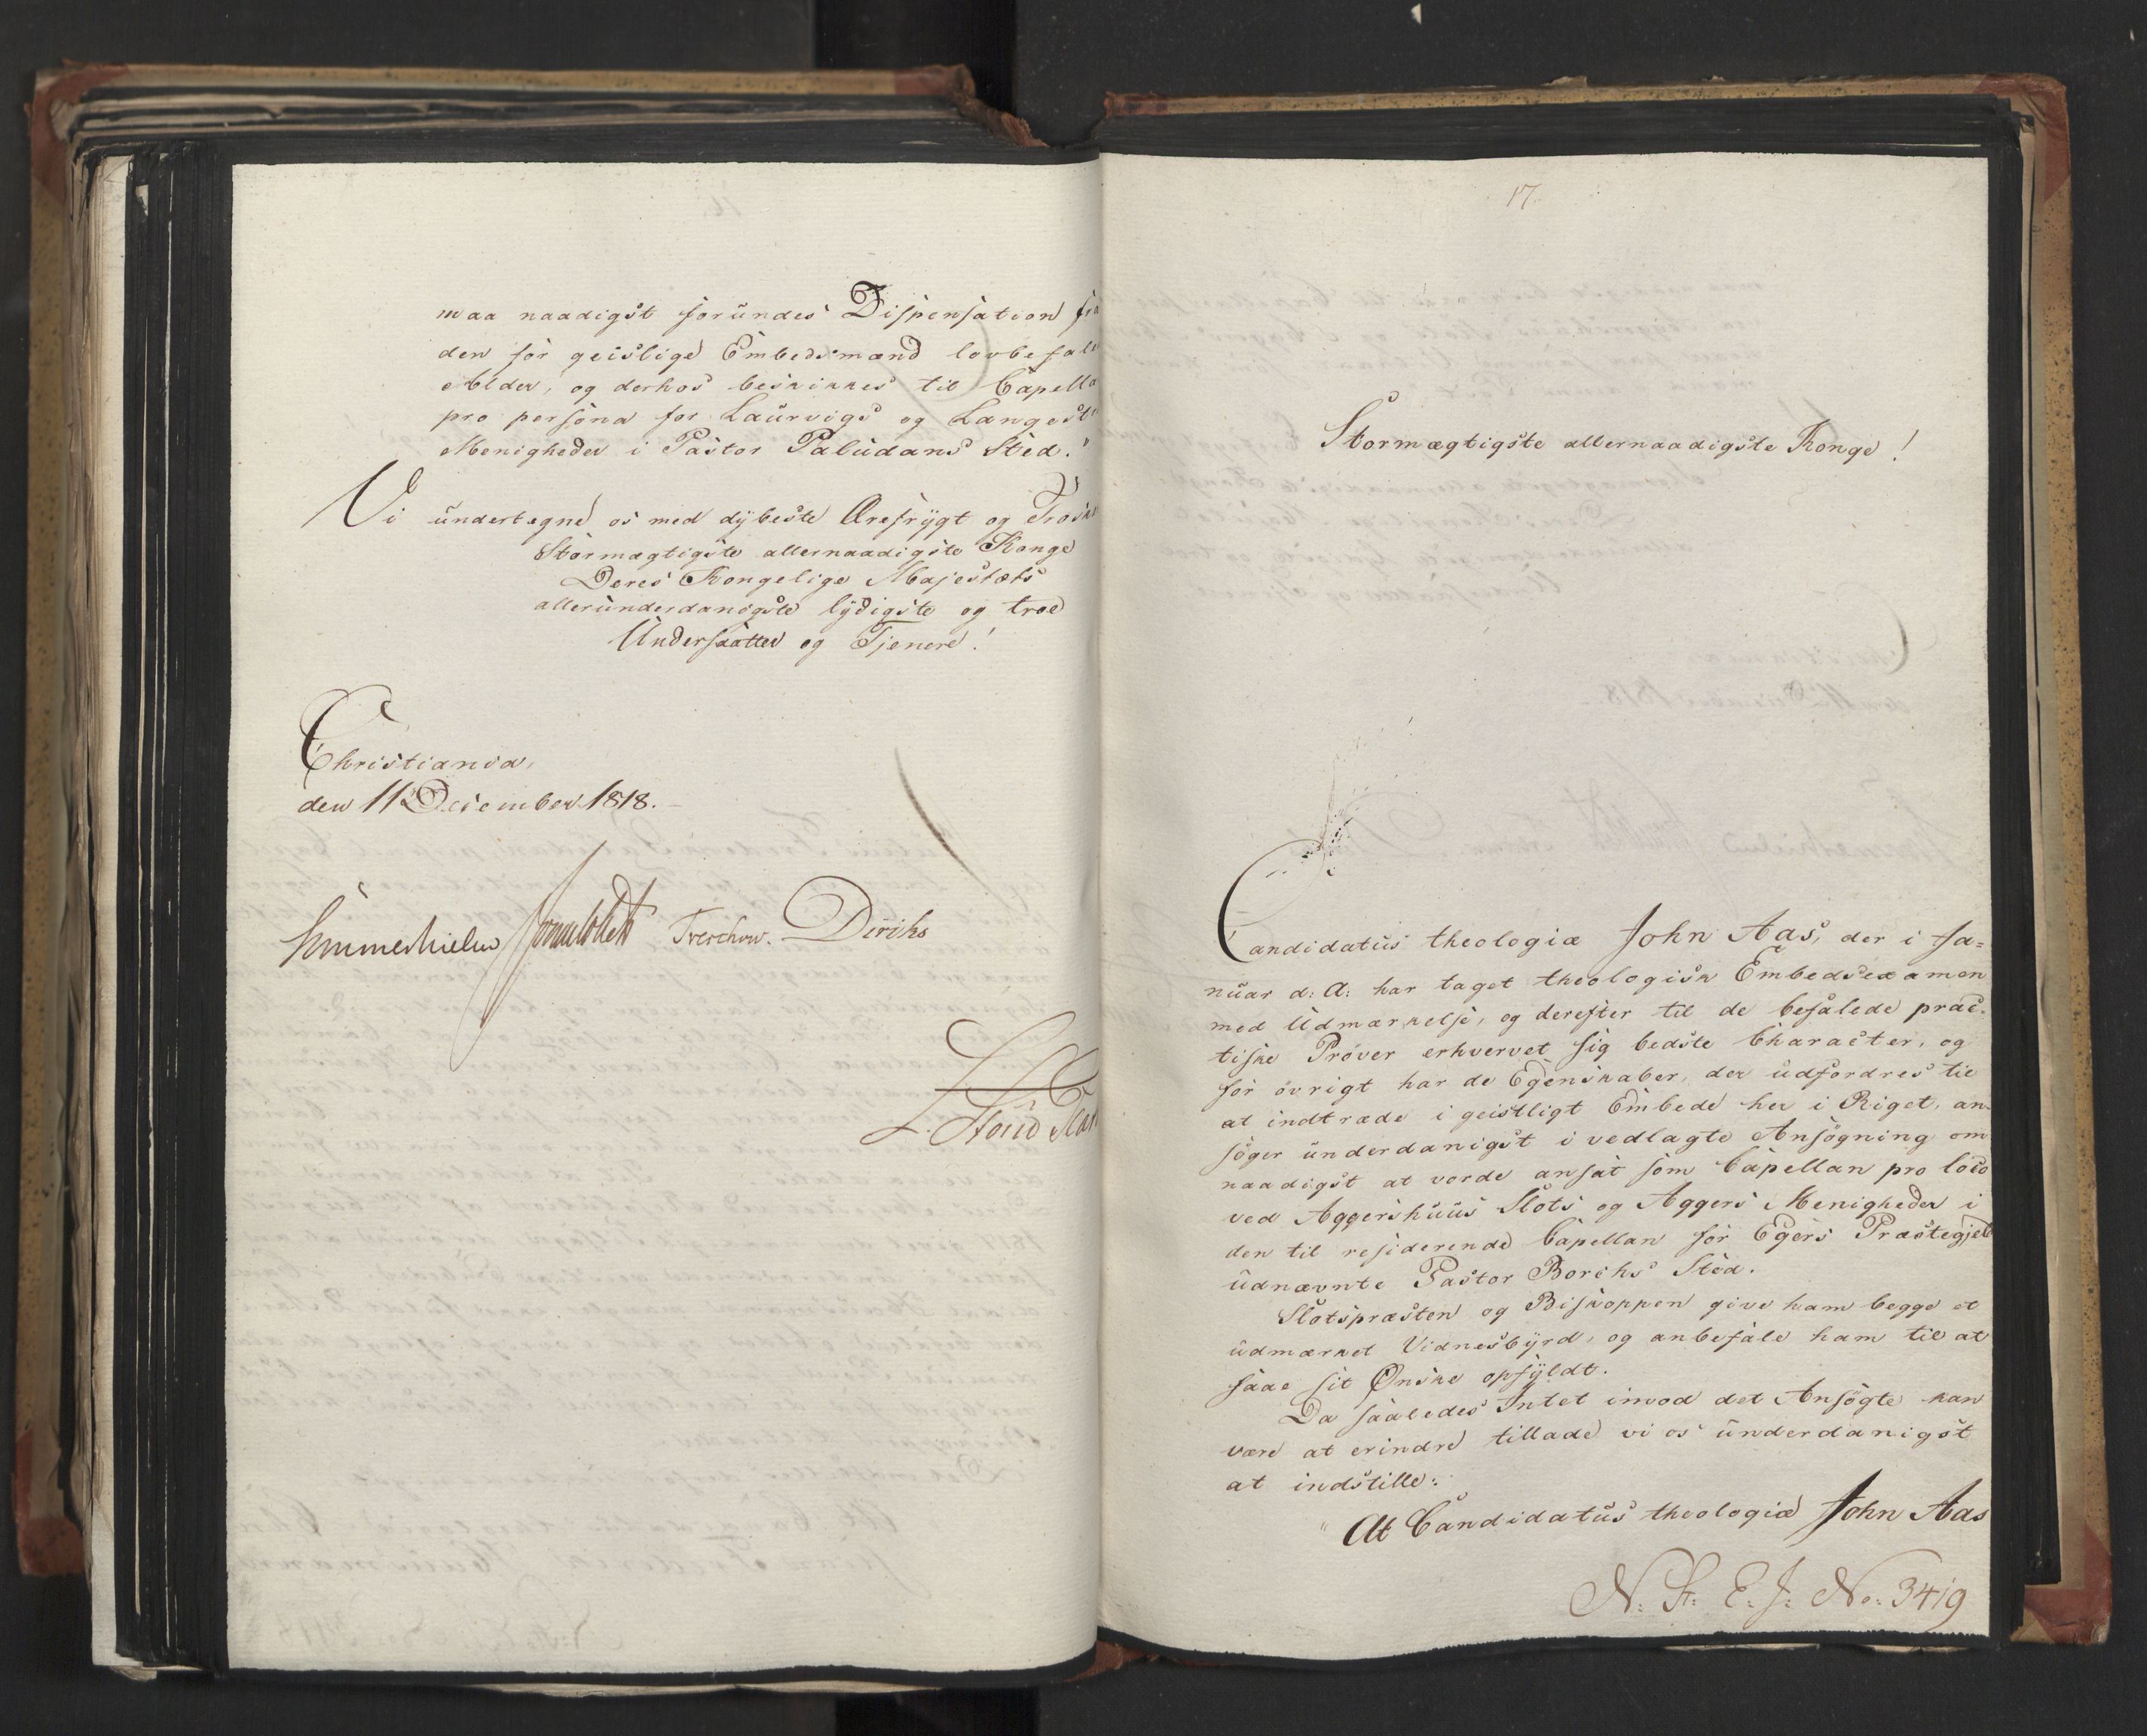 maa naadigst forundes Dispensation fra
den for geislige Embedsmænd lovbefale
Alder, og derhos beskikkes til Capella
pro persona for Laurvigs og Langest
Menigheder i Pastor Paludans Sted."
Vi undertegne os med dybeste Ærefrygt og Trosk
Stormægtigste allernaadigste Konge
Deres Kongelige Majestæts
allerunderdanigste lydigste og troe
Undersaatter og Tjenere!
Christiania,
den 11 December 1818.
Sommerhielm Treschow. Diriks
17.
Stormægtigste allernaadigste Konge!
Candidatus theologiæ John Aas, der i Ja=
nuar d: A: har taget theologisk Embedsexamen
med Udmærkelse, og derefter til de befalede prac-
tiske Prøver erhvervet sig bedste Character, og
for øvrigt har de Egenskaber, der udfordres til
at indtræde i geistligt Embede her i Riget, an-
søger underdanigst i vedlagte Ansøgning om
naadigst at vorde ansat som Capellan pro loco
ved Aggershuus Slots og Aggers Menigheder i
den til residerende Capellan for Egers Præstegjeld
udnævnte Pastor Borchs Sted.
Slotspræsten og Biskoppen give ham begge et
udmærket Vidnesbyrd, og anbefale ham til at
faae sit Ønske opfyldt.
Da saaledes Intet imod det Ansøgte kan
være at erindre tillade vi os underdanigst
at indstille:
"At Candidatus theologiæ John Aas
N: St: E: J: No: 3419